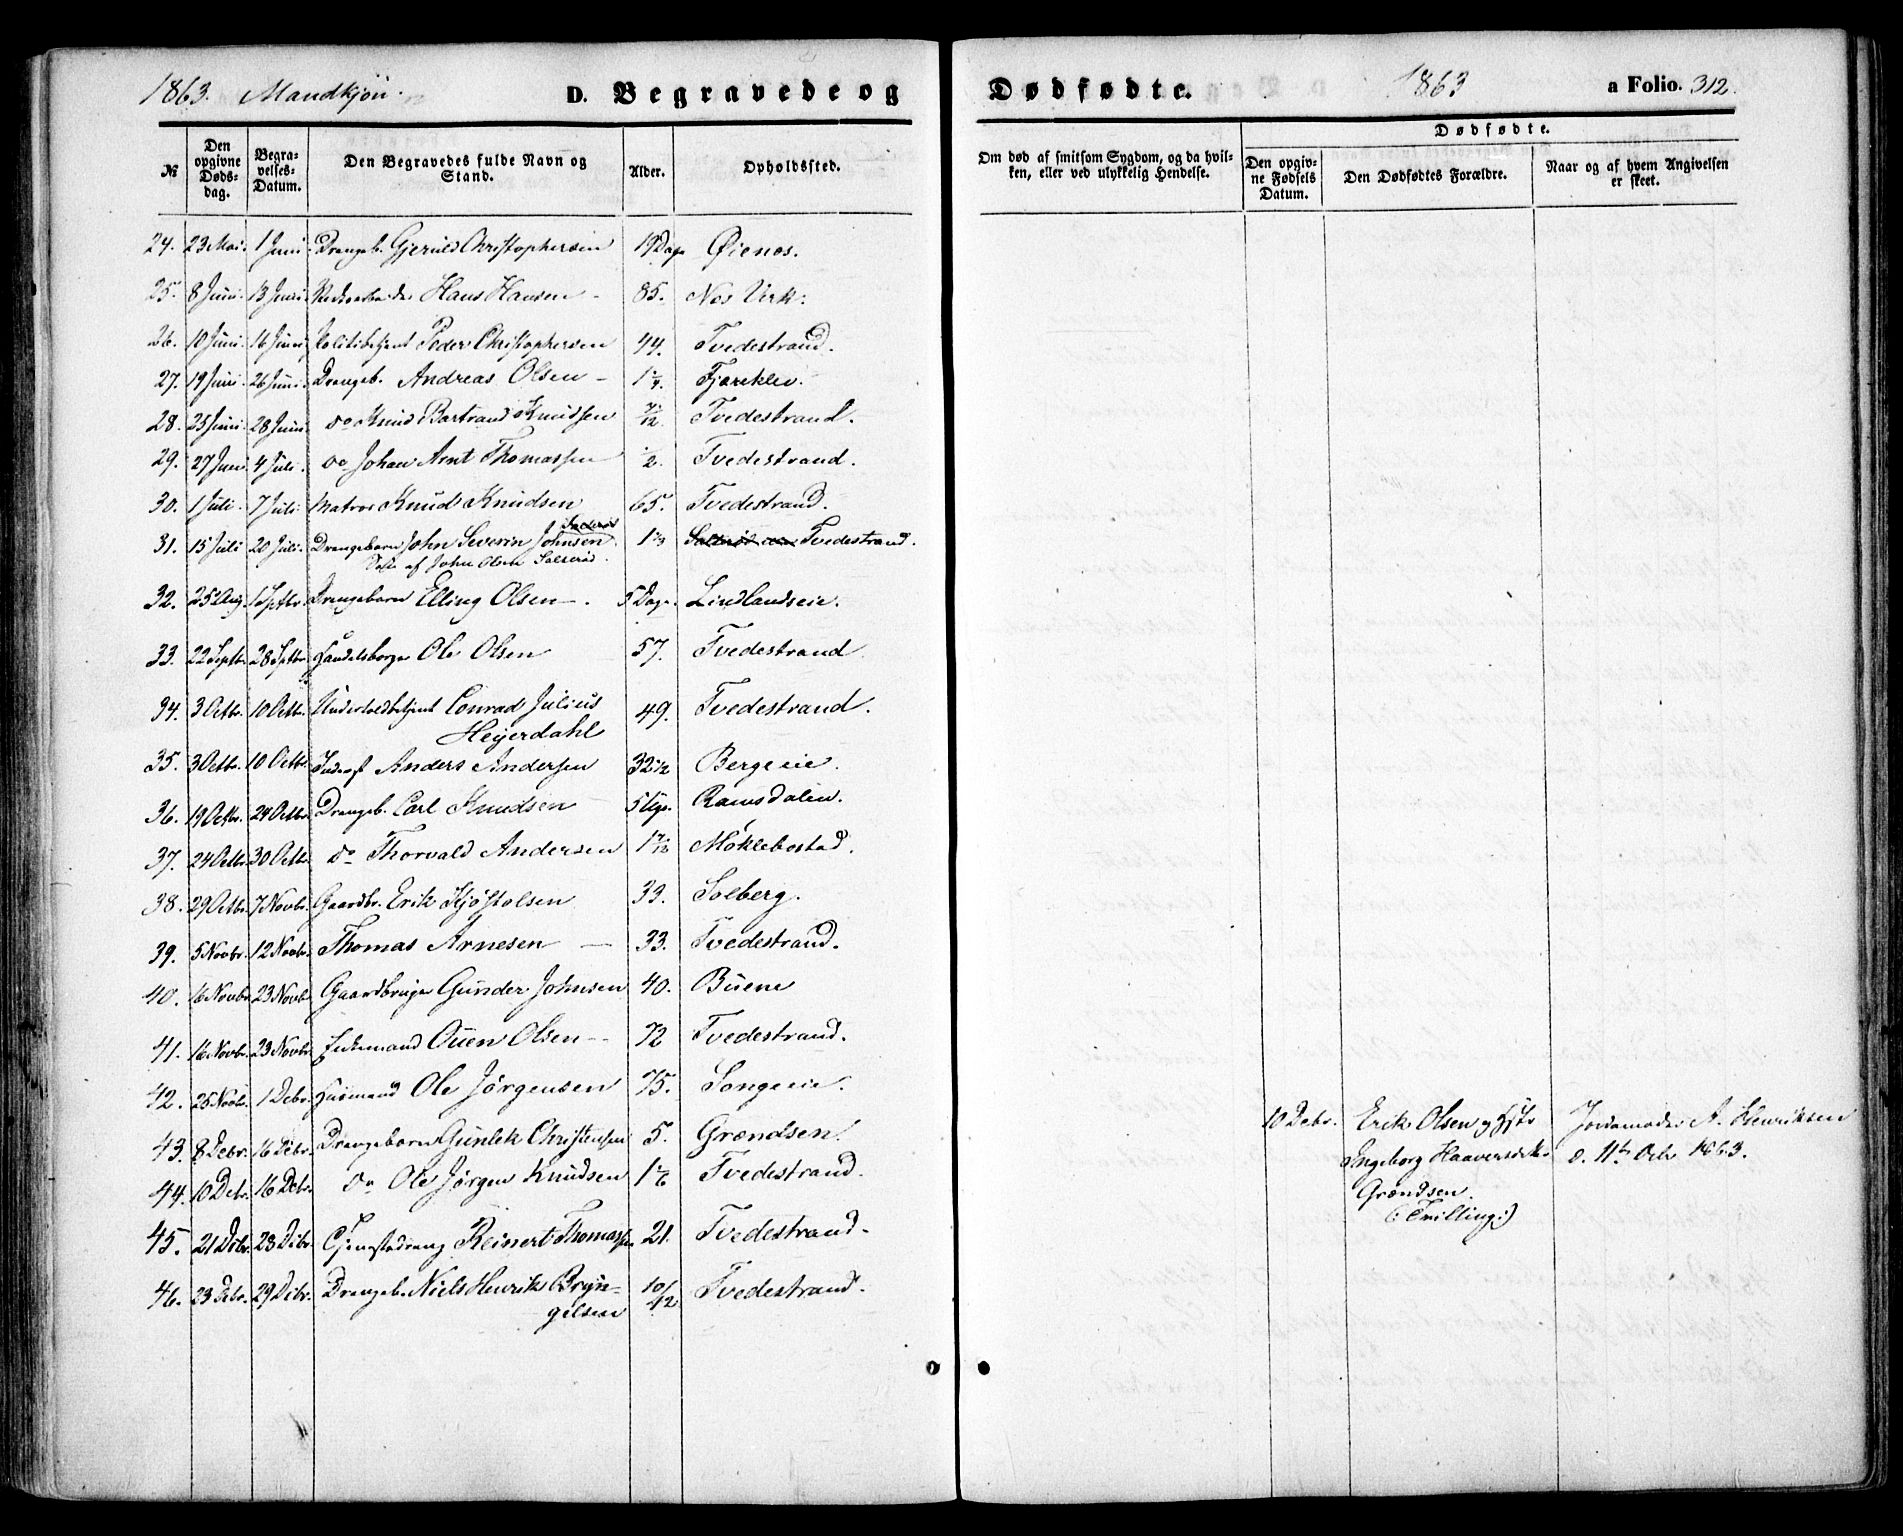 1863. Mandkjön.
D. Begravede og
Dødfødte.
1863
a Folio. 312.
№
Den opgivne Døds-dag.
Begra-velses-Datum.
Den Begravedes fulde Navn og Stand.
Alder.
Opholdssted.
Om død af smitsom Sygdom, og da hvil-ken, eller ved ulykkelig Hendelse.
Dødfødte.
Den opgiv-ne Fødsels Datum.
Den Dødfødtes Forældre.
Naar og af hvem Angivelsen er skeet.
24. 23 Mai. 1 Juni Drengeb. Gjeruld Christophersen 19 Dage Øienes.
25. 8 Juni. 13 Juni. Hans Hansen - 85. Nes Verk.
26. 10 Juni. 16 Juni Politibetjent Peder Christophersen 44. Tvedestrand.
27. 19 Juni 26 Juni. Drengeb. Andreas Olsen - 1 1/4. Fjæreklev.
28. 25 Juni. 28 Juni do Knud Bartrand Knudsen 7/12 Tvedestrand.
29. 27 Juni 4 Juli. do Johan Arnt Thomassen 1/2. Tvedestrand.
30. 1 Juli. 7 Juli Matros Knud Knudsen 65. Tvedestrand.
31. 15 Juli 20 Juli. Drengebarn John Severin Johnsen 1 2/3 Tvedestrand.
Søn af John Olsen Salterød.
32. 25 Aug. 1 Septbr. Drengebarn Elling Olsen -. 5 Dage. Lindlandseie.
33. 22 Septbr. 28 Septbr Handelsborger Ole Olsen 57. Tvedestrand
34. 3 Octbr. 10 Octbr. Underfoldbetjent Conrad Julius 49. Tvedestrand.
Heyerdahl
35. 3 Octbr. 10 Octbr. Inderst Anders Andersen 32 1/2 Bergeeie.
36. 19 Octbr. 24 Octbr. Drengeb. Carl Knudsen 5 Uger. Ramsdalen.
37. 24 Octbr. 30 Octbr. do Thorvald Andersen 1 7/12 Möklebostad.
38. 29 Octbr. 7 Novbr. Gaardbr. Erik Kjöstolsen 33. Solberg.
39. 5 Novbr. 12 Novbr. Thomas Arnesen - 33. Tvedestrand.
40. 16 Novbr. 23 Novbr. Gaardbruger Gunder Johnsen 40. Buene
41. 16 Novbr. 23 Novbr. Ouen Olsen -- 72 Tvedestrand.
42. 25 Novbr. 1 Debr. Huusmand Ole Jörgensen 75. Songeeie.
43. 8 Debr. 16 Debr. Drengebarn Gunlek Christensen 5. Grændsen.
44. 10 Debr. 16 Debr. do Ole Jörgen Knudsen 1 1/6 Tvedestrand.
45. 21 Debr. 28 Debr. Tjenestedreng Reinert Thomassen 21. Tvedestrand.
46. 23 Debr. 29 Debr. Drengeb. Niels Henrik Bryn- 10/12 Tvedestrand.
gelsen
10 Debr. Erik Olsen og Hstr Jordemoder A. Henriksen
Ingeborg Haaversdtr d. 11te Debr 1863.
Grændsen.
(: Tvilling :)